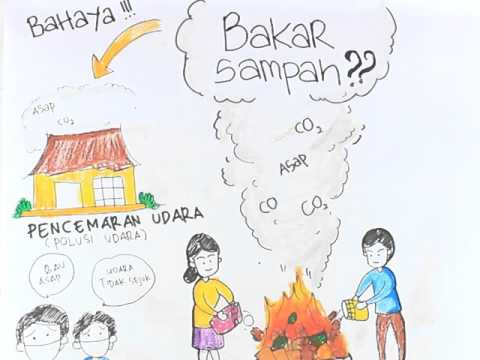 BAHAYA !!!
BAKAR
SAMPAH??
ASAP
CO₂
CO₂
ASAP
CO
CO₂
PENCEMARAN UDARA
(POLUSI UDARA)
BAU
ASAP
UDARA
TIDAK SEJUK